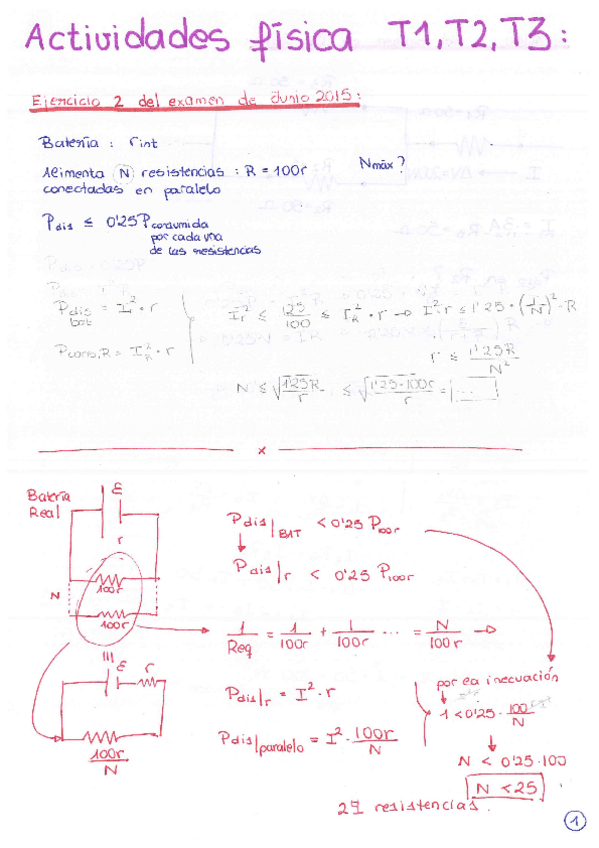 Actividades física T1, T2, T3:
Ejercicio 2 del examen de Junio 2015:
Batería: rint
Alimenta N resistencias: R = 100r
conectadas en paralelo
Nmáx?
Pdis ≤ 0'25 Pconsumida
por cada una
de las resistencias
Pdis bat = Ir² · r
Pcons,R = IR² · r
Ir² ≤ 125/100 ≤ IR² · r → I² · r ≤ 1'25 · (1/N)² · R
r ≤ 1'25R/N²
N ≤ √(1'25R/r) ≤ √(1'25·100r/r) = ...
x
Batería
Real
ε
r
100r
N
100r
Pdis|BAT < 0'25 P100r
Pdis|r < 0'25 P100r
1/Req = 1/100r + 1/100r ... = N/100r →
ε r
100r/N
Pdis|r = I² · r
Pdis|paralelo = I² · 100r/N
por la inecuación
1 < 0'25 · 100/N
N < 0'25·100
N < 25
24 resistencias.
1